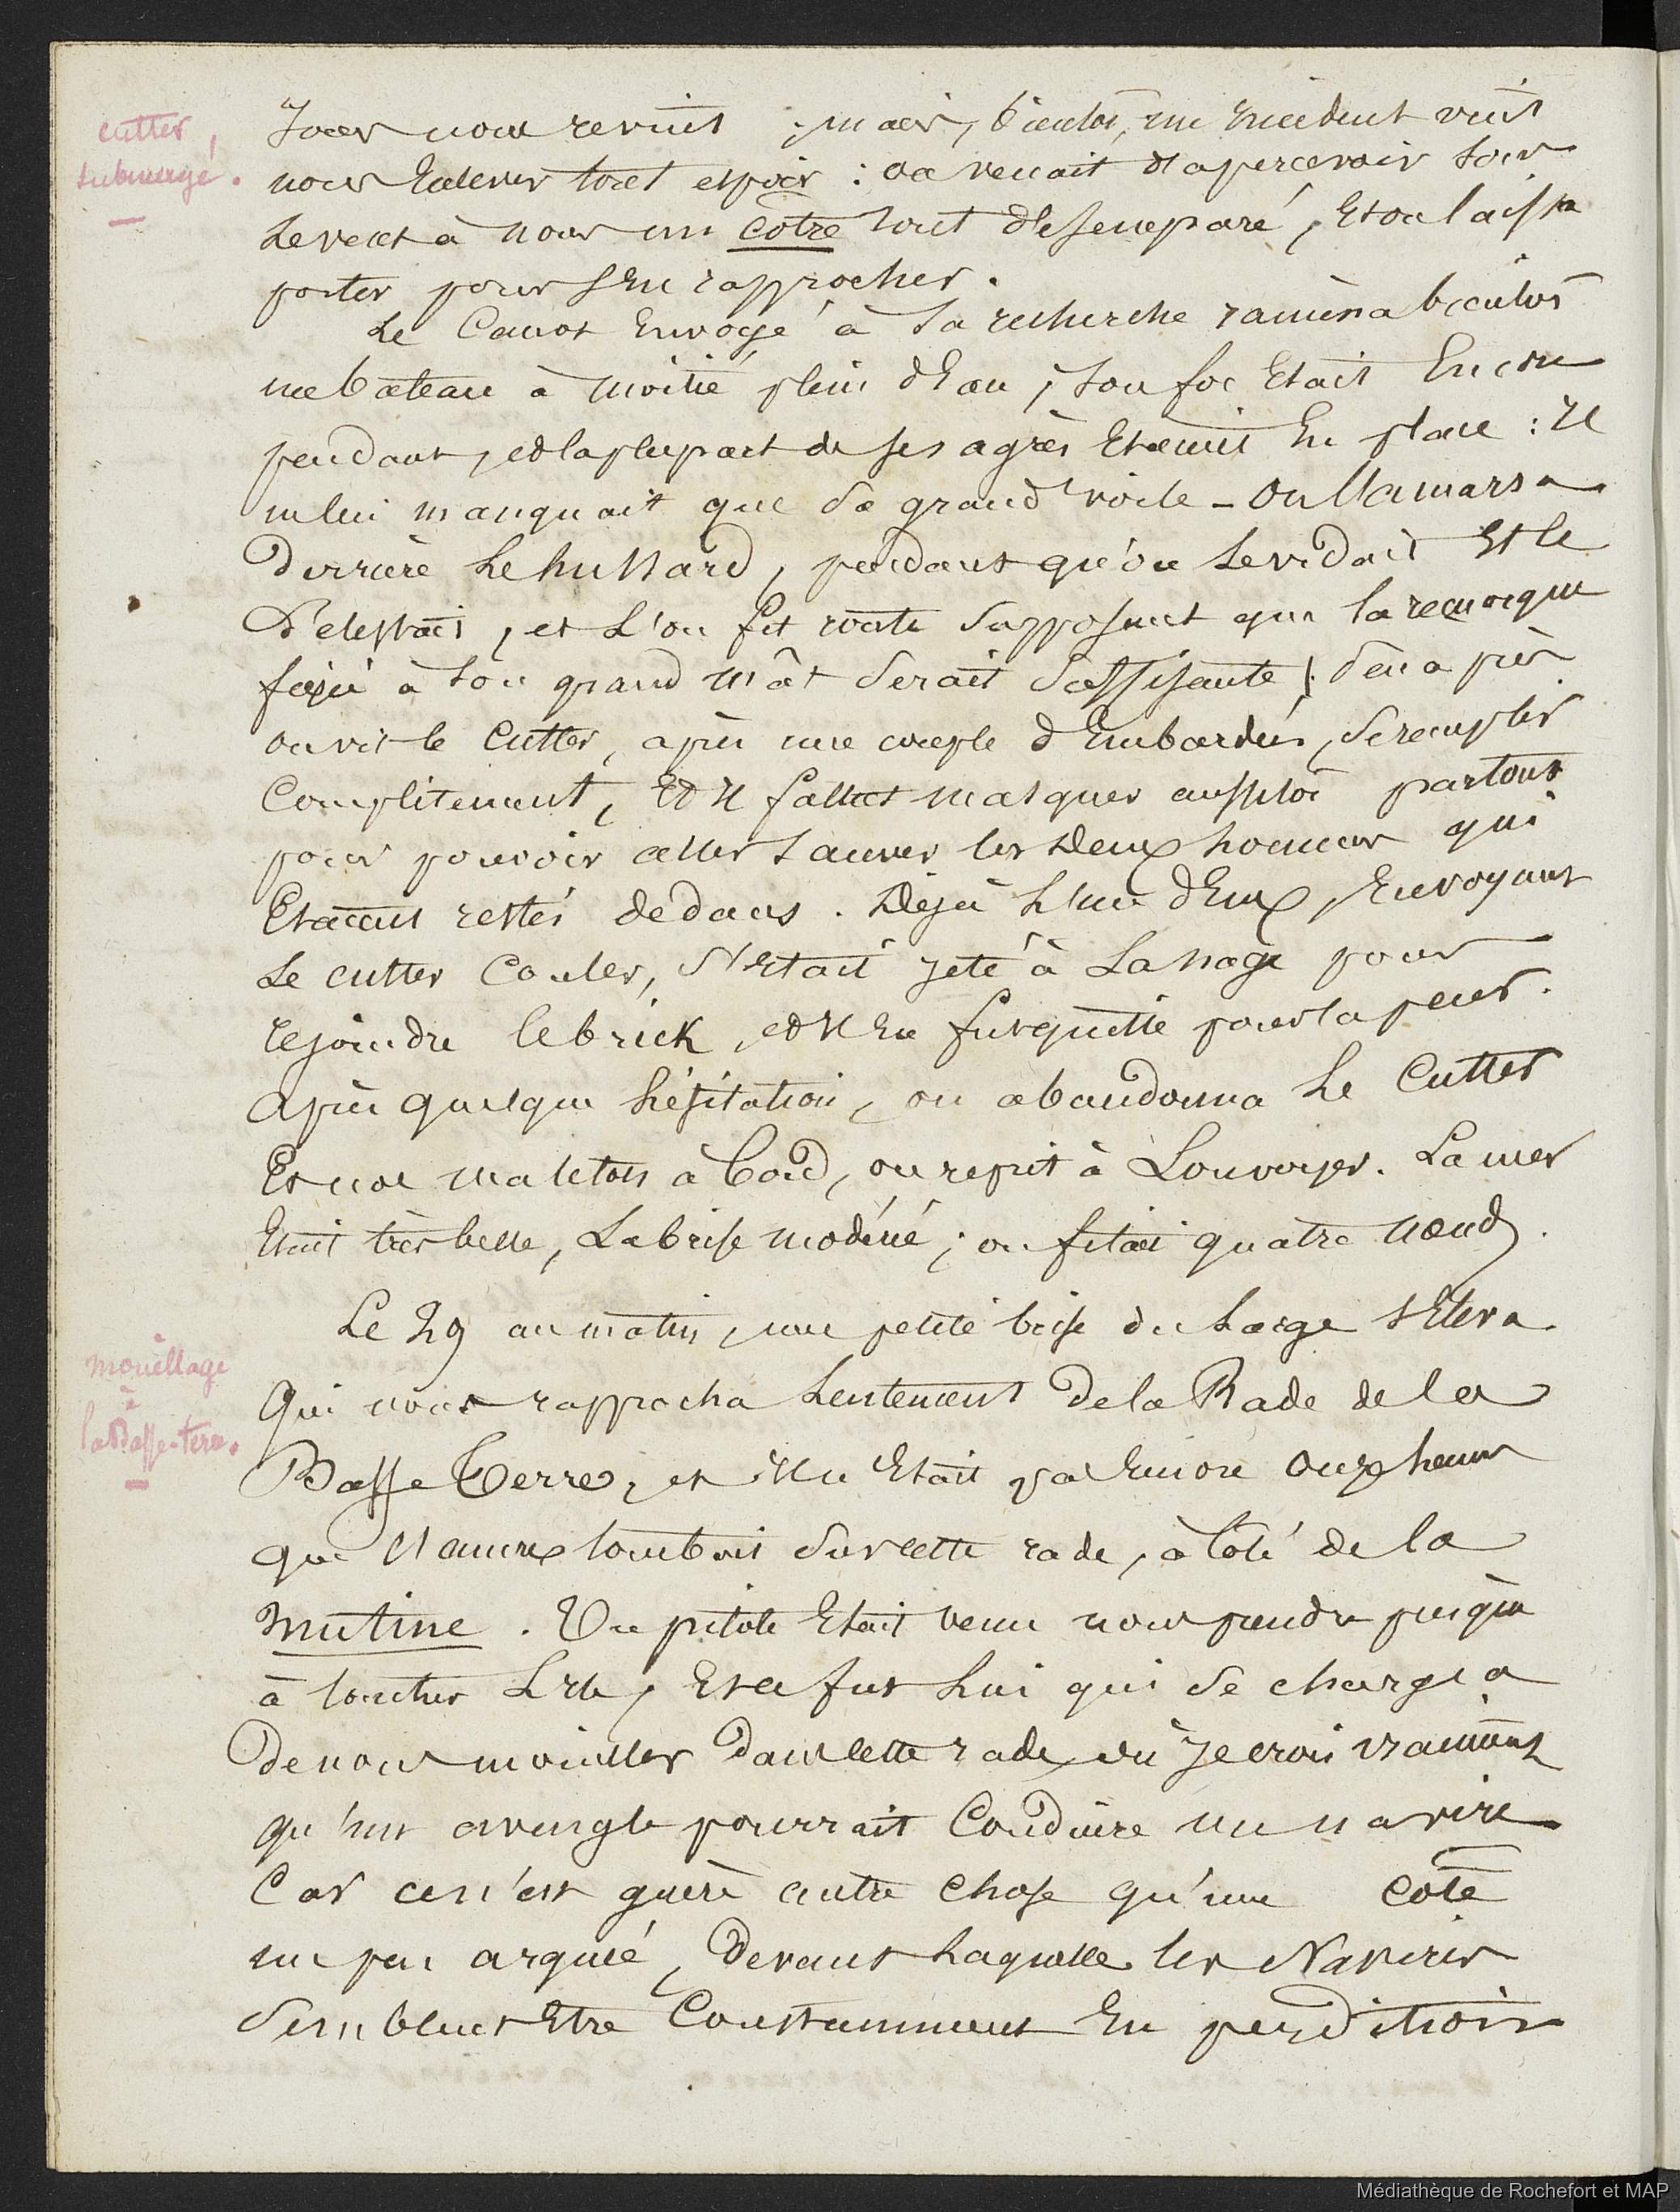 cutter,
submergé.
mais, bientôt, un incident vint
nous enlever tout espoir : on venait d'apercevoir sous
le vent à nous un côtre tout désemparé, et on laissa
porter pour s'en rapprocher.
Le canot envoyé à sa recherche ramena bientôt
un bateau à moitié plein d'eau ; son foc était encore
pendant, et la plupart de ses agrès étaient en place : il
ne lui manquait que sa grand voile - on l'amarra
derrière le hussard, pendant qu'on le vidait et le
délestait, et l'on fit route supposant que la remorque
fixée à son grand mât serait suffisante ; d'en a près
on vit le cutter, après une couple d'embardées, se remplir
complètement, et il fallut masquer aussitôt partout
pour pouvoir aller sauver les deux hommes qui
étaient restés dedans. Déjà l'un d'eux, en voyant
le cutter couler, s'était jeté à la nage pour
rejoindre le brick, et il en fut quitte pour la peur.
après quelque hésitation, on abandonna le cutter
et nos matelots à bord, on reprit à louvoyer. La mer
était très belle, la brise modérée ; on filait quatre nœuds.
Le 29 au matin, une petite brise du large s'éleva
mouillage
à
la Basse-terre.
qui nous rapprocha lentement de la Rade de la
Basse Terre, et il n'était pas encore onze heures
que l'ancre tombait sur cette rade, à côté de la
mutine. Un pilote était venu nous prendre jusqu'à
à toucher l'île, et ce fut lui qui se chargea
de nous mouiller dans cette rade où je crois vraiment
qu'un aveugle pourrait conduire un navire
car ce n'est guère autre chose qu'une côte
un peu arquée, devant laquelle les Navires
semblent être constamment en perdition
Médiathèque de Rochefort et MAP